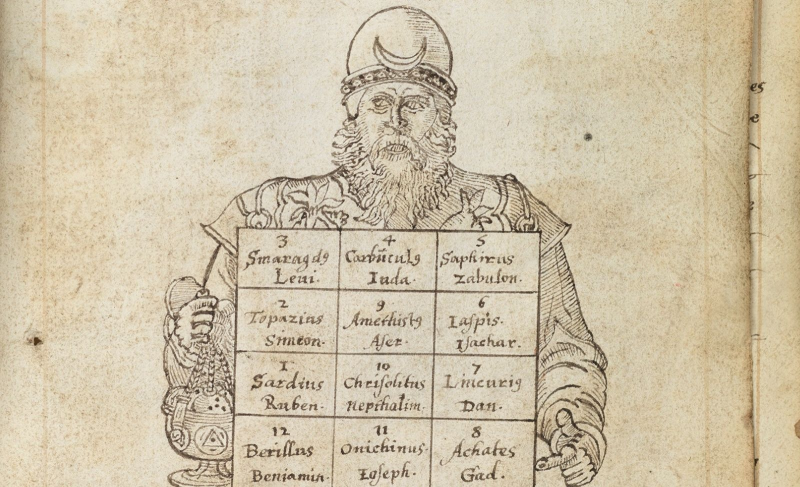 3
Smaragdꝰ
Leui.
4
Carbũculꝰ
Iuda.
5
Saphirus
Zabulon.
2
Topazius
Simeon.
9
Amethistꝰ
Aser.
6
Iaspis.
Isachar.
1
Sardius
Ruben.
10
Chrisolitus
Nepthalim.
7
Lincuriꝰ
Dan.
12
Berillus
Beniamin.
11
Onichinus.
Ioseph.
8
Achates
Gad.
es
e